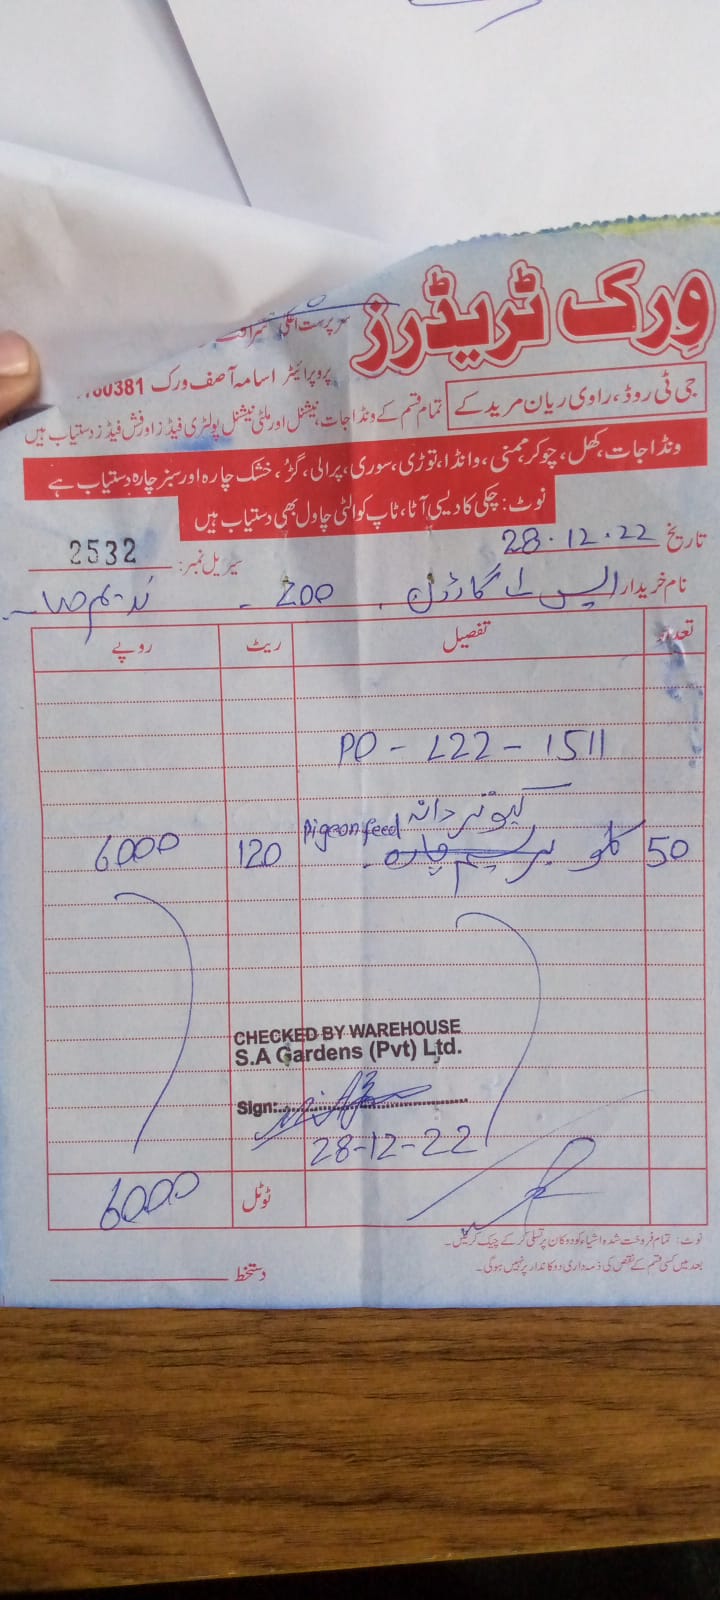 ورک ٹریڈرز
سرپرست اعلیٰ
پروپرائیٹر اسامہ آصف ورک 60381
جی ٹی روڈ، راوی ریان مریدکے
تمام قسم کے ونڈا جات، نیشنل اور ملٹی نیشنل پولٹری فیڈز اور فش فیڈز دستیاب ہیں
ونڈا جات، کھل، چوکر، ممنی، وانڈا، توڑی، سوری، پرالی، گڑ، خشک چارہ اور سبز چارہ دستیاب ہے
نوٹ: چکی کا دیسی آٹا، ٹاپ کوالٹی چاول بھی دستیاب ہیں
تاریخ 28.12.22 سیریل نمبر: 2532
نام خریدار ایس اے گارڈن . 200 - ندیم صاحب
تعداد تفصیل ریٹ روپے
PO - L22 - 1511
کبوتر دانہ
Pigeon feed
50 کلو برسیم چارہ 120 6000
CHECKED BY WAREHOUSE
S.A Gardens (Pvt) Ltd.
Sign:
28-12-22
ٹوٹل 6000
نوٹ: تمام فروخت شدہ اشیاء کو دوکان پر تسلی کر کے چیک کر لیں۔
بعد میں کسی قسم کے نقص کی ذمہ داری دوکاندار پر نہیں ہو گی۔
دستخط